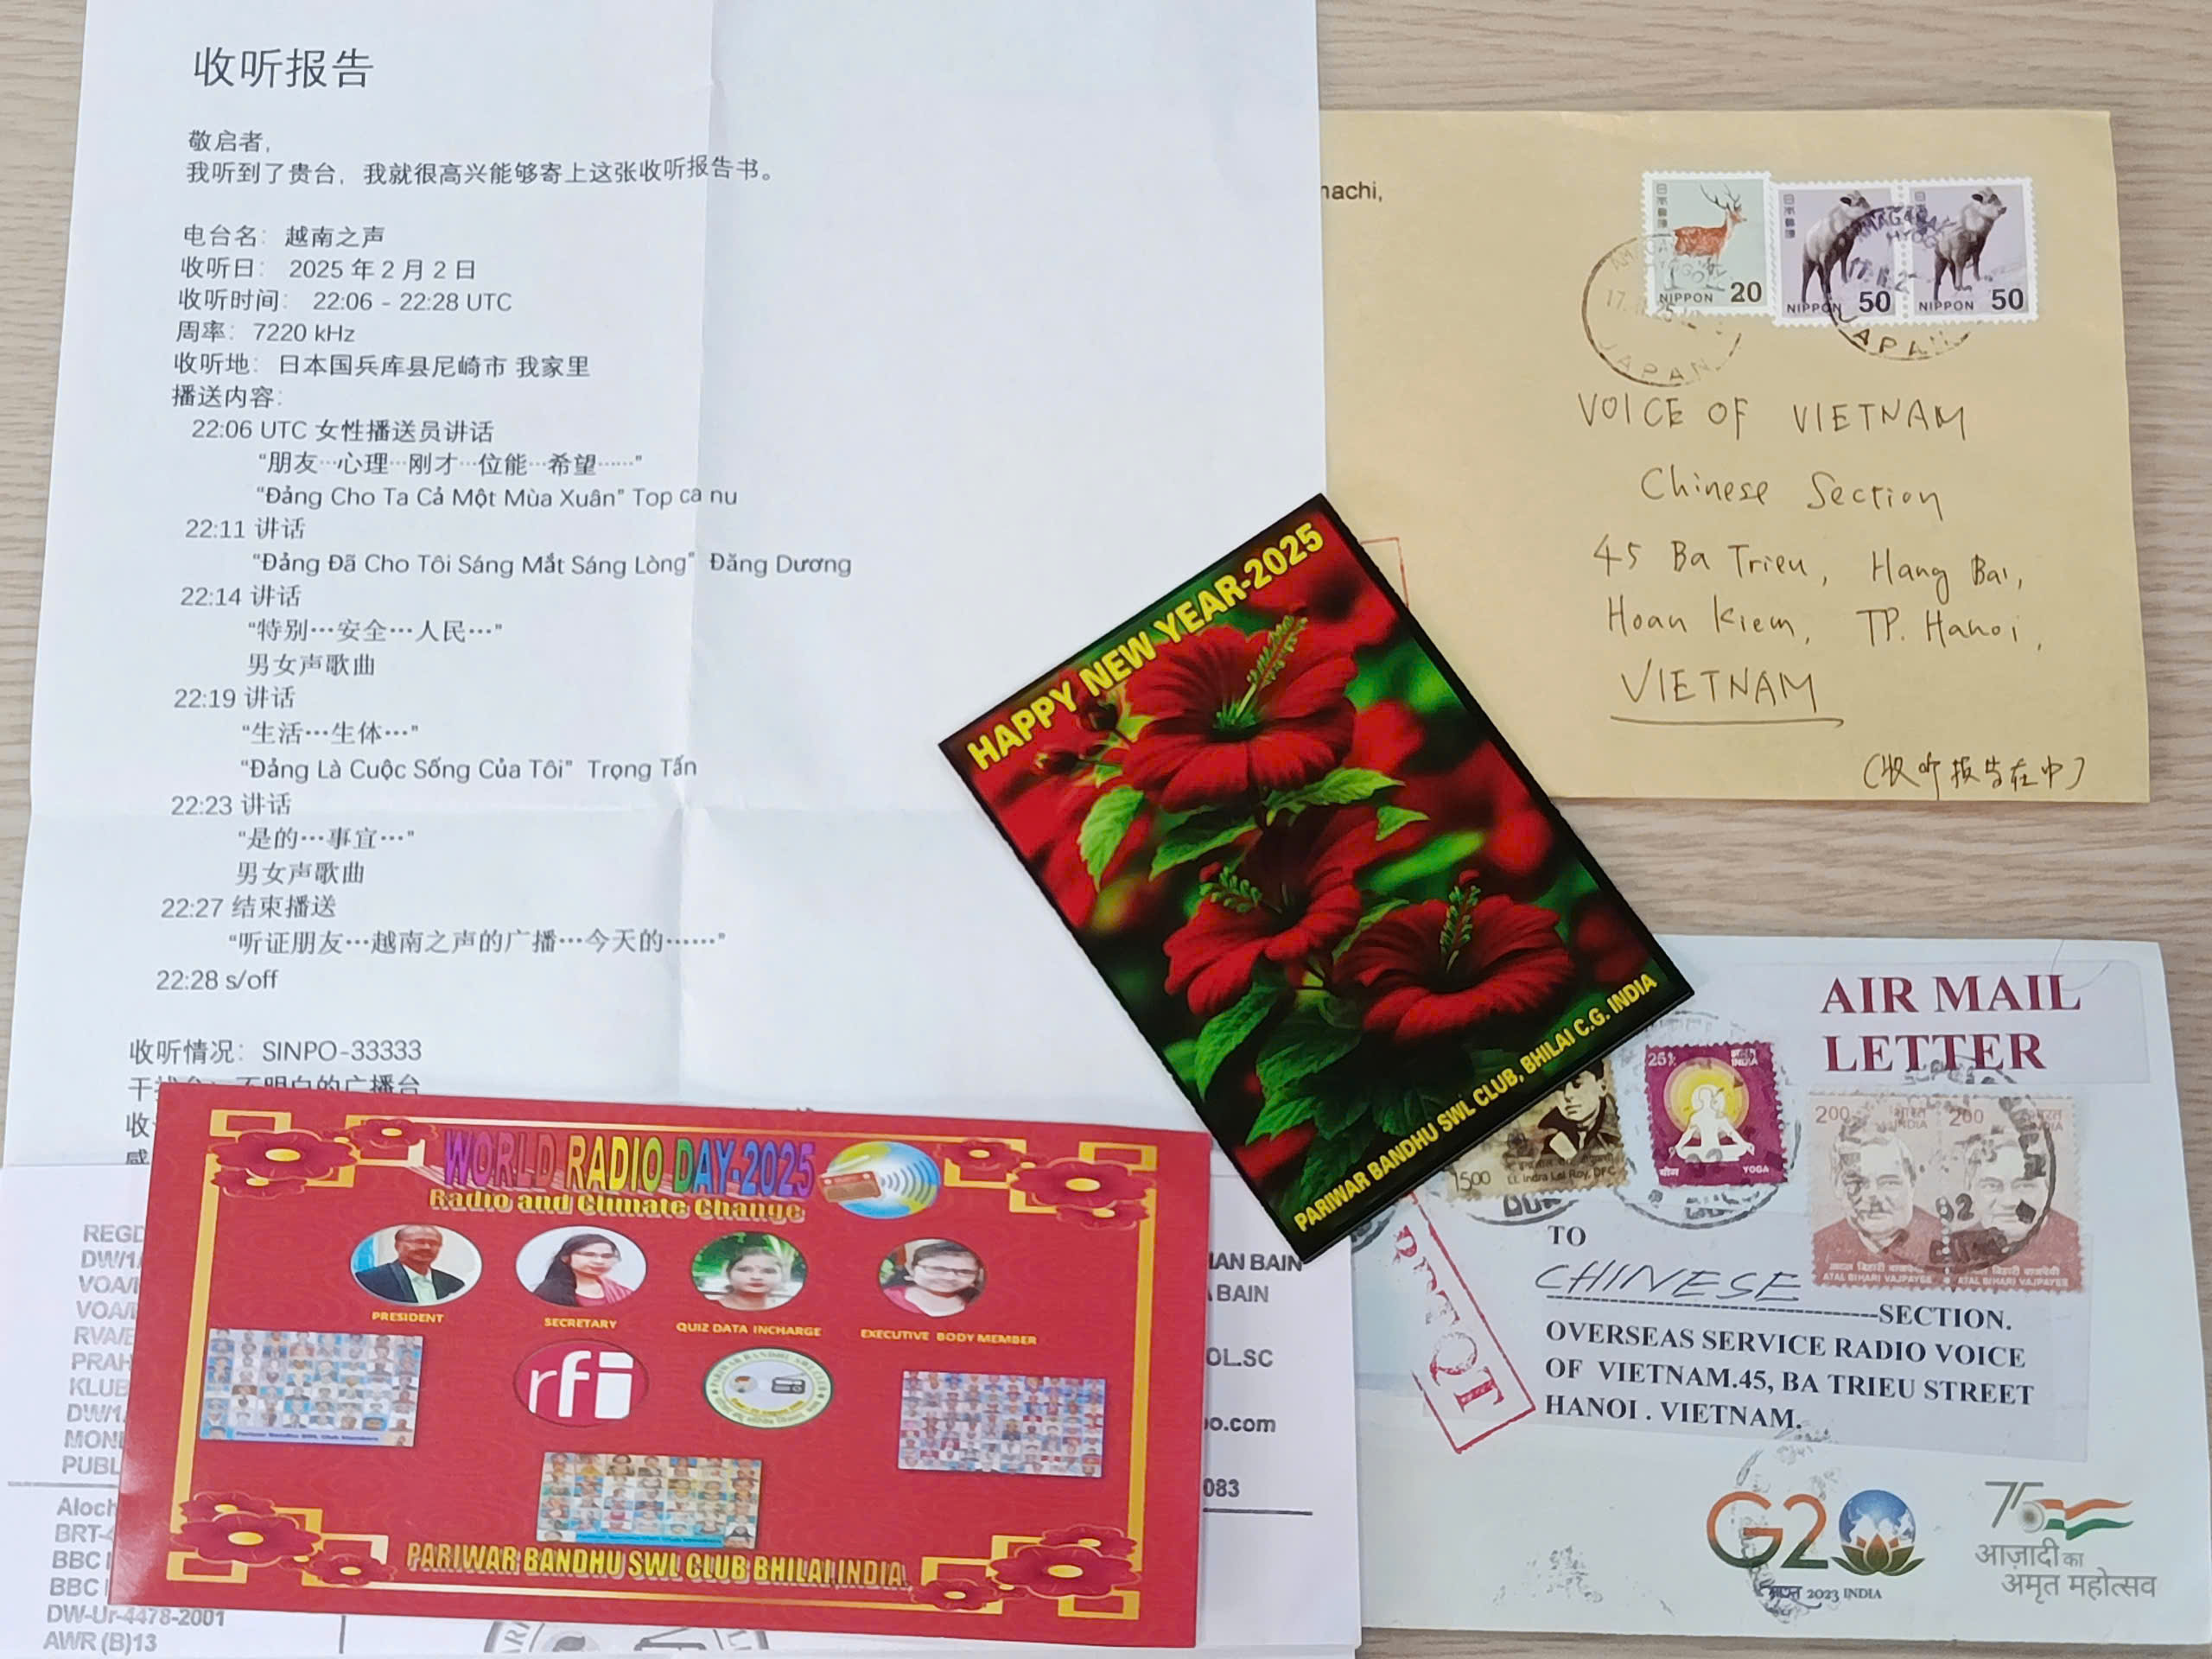 收听报告
敬启者，
我听到了贵台，我就很高兴能够寄上这张收听报告书。
电台名： 越南之声
收听日： 2025 年 2 月 2 日
收听时间： 22:06 - 22:28 UTC
周率：7220 kHz
收听地：日本国兵库县尼崎市 我家里
播送内容：
22:06 UTC 女性播送员讲话
“朋友…心理…刚才…位能…希望……”
“Đảng Cho Ta Cả Một Mùa Xuân” Top ca nu
22:11 讲话
“Đảng Đã Cho Tôi Sáng Mắt Sáng Lòng” Đăng Dương
22:14 讲话
“特别…安全…人民…”
男女声歌曲
22:19 讲话
“生活…生体…”
“Đảng Là Cuộc Sống Của Tôi” Trọng Tấn
22:23 讲话
“是的…事宜…”
男女声歌曲
22:27 结束播送
“听证朋友…越南之声的广播…今天的……”
22:28 s/off
收听情况：SINPO-33333
不明白的广播台
收
nachi,
20 NIPPON
NIPPON 50
NIPPON 50
JAPAN
VOICE OF VIETNAM
Chinese Section
45 Ba Trieu, Hang Bai,
Hoan Kiem, TP. Hanoi,
VIETNAM
(收听报告在中)
HAPPY NEW YEAR-2025
PARIWAR BANDHU SWL CLUB, BHILAI C.G. INDIA
WORLD RADIO DAY-2025
Radio and Climate Change
PRESIDENT
SECRETARY
QUIZ DATA INCHARGE
EXECUTIVE BODY MEMBER
rfi
PARIWAR BANDHU SWL CLUB BHILAI,INDIA
REGD
DW/1
VOA/
VOA/
RVA/
PRAH
KLUB
DW/1
MONI
PUBL
Aloch
BRT-
BBC
BBC
DW-Ur-4478-2001
AWR (B)13
IAN BAIN
BAIN
OL.SC
o.com
083
AIR MAIL
LETTER
1500
Lt. Indra Lal Roy, DFC
INDIA
योग YOGA
200 भारत INDIA
200 भारत INDIA
ATAL BIHARI VAJPAYEE
ATAL BIHARI VAJPAYEE
TO
CHINESE SECTION.
OVERSEAS SERVICE RADIO VOICE
OF VIETNAM.45, BA TRIEU STREET
HANOI . VIETNAM.
G20
भारत 2023 INDIA
75
आज़ादी का
अमृत महोत्सव